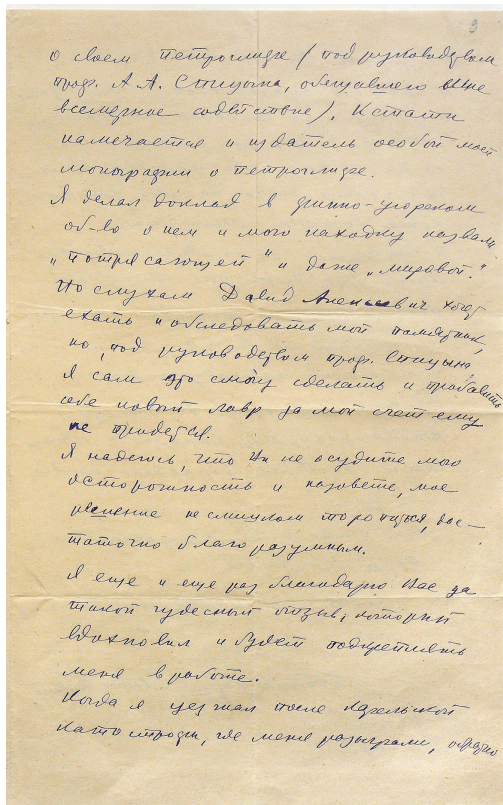 9
о своем петроглифе (под руководством
проф. А. А. Спицына, обещавшего мне
всемерное содействие). Кстати
намечается и издатель особой моей
монографии о петроглифе.
Я делал доклад в финно-угорском
об-во о нем и мою находку назвали
„потрясающей" и даже „мировой."
По слухам Давид Алексеевич хочет
ехать и обследовать мой памятник,
но, под руководством проф. Спицына
я сам это смогу сделать и прибавить
себе новый лавр за мой счет ему
не придется.
Я надеюсь, что Вы не осудите мою
осторожность и назовете, мое
решение не слишком торопиться, дос-
таточно благоразумным.
Я еще и еще раз благодарю Вас за
такой чудесный отзыв, который
вдохновил и будет подкреплять
меня в работе.
Когда я уезжал после
катастрофы, где меня разыграли,